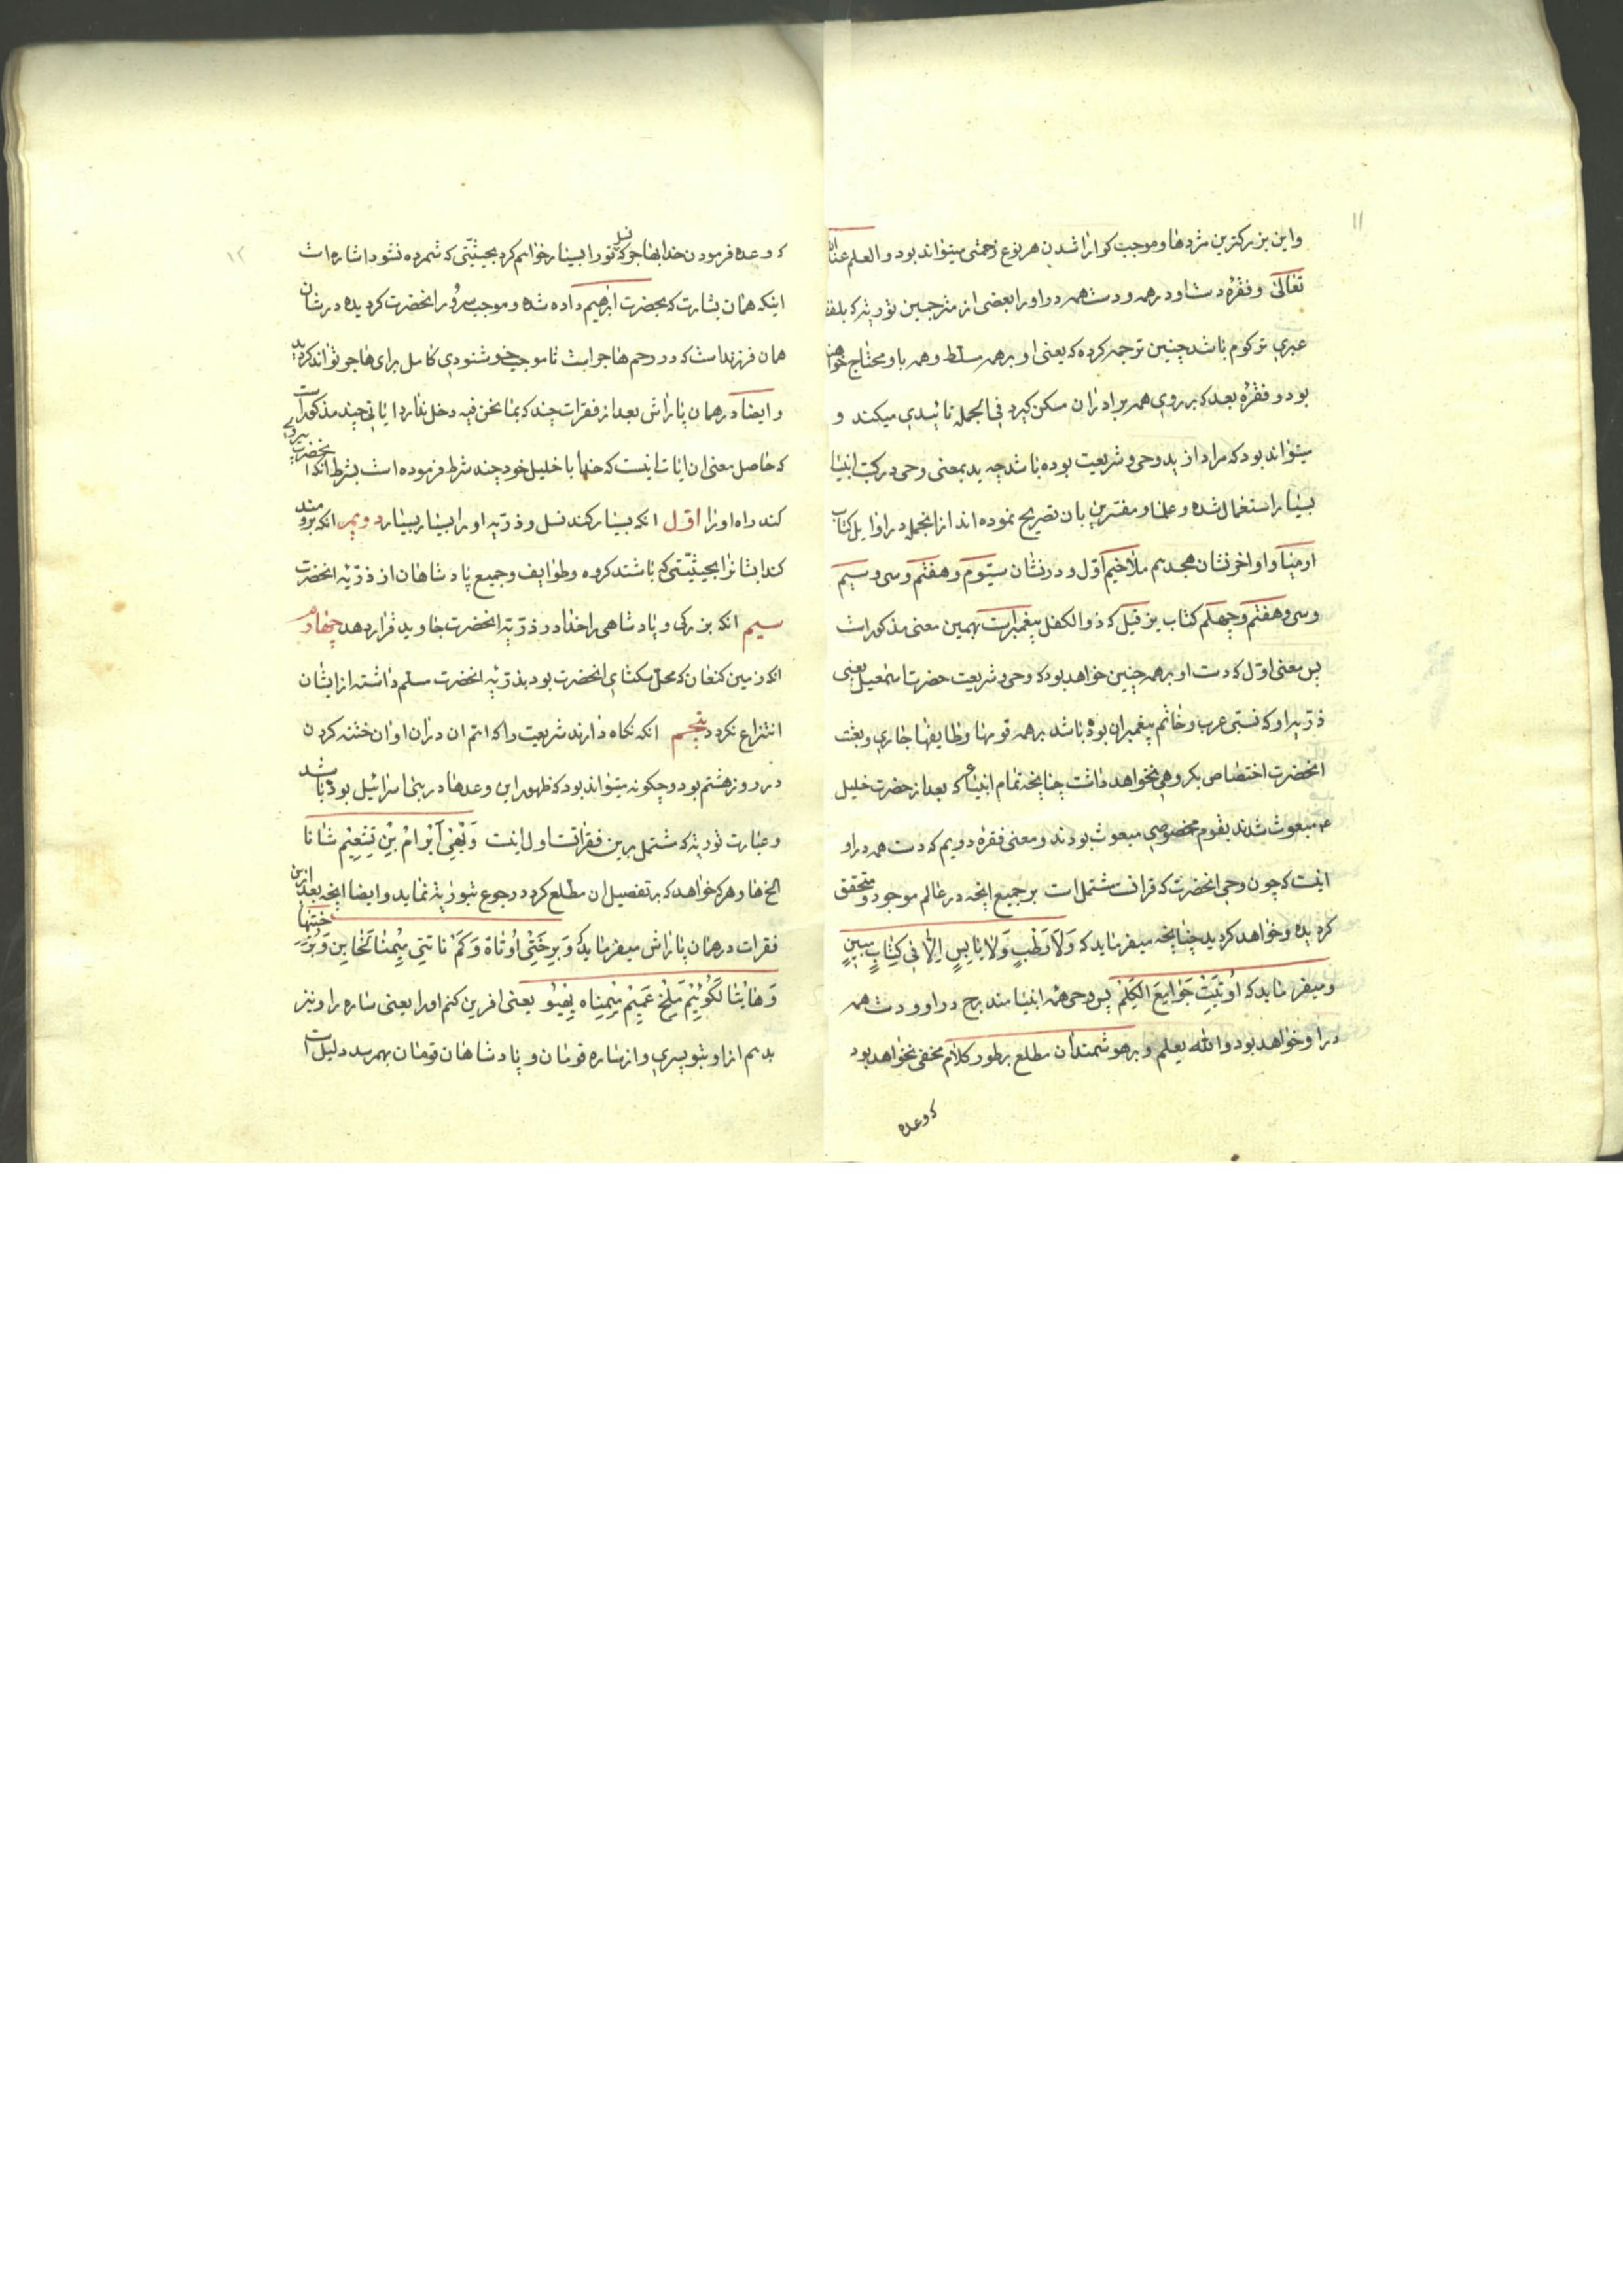 ۱۱
واین بزرکترین مژدها وموجب کوارا شدن هر نوع زحمتی میتواند بود والعلم عندالله
تعالی وفقرهٔ دست او در همه ودست همه در او را بعضی از مترجمین توریة که بلغة
عبری ترکوم باشد چنین ترجمه کرده که یعنی او بر همه مسلط وهمه باو محتاج خواهند
بود وفقرهٔ بعد که بر روی همه برادران مسکن کیرد فی الجمله تائیدی میکند و
میتواند بود که مراد از ید وحی وشریعت بوده باشد چه ید بمعنی وحی در کتب انبیا
بسیار استعمال شده وعلما ومفسرین بان تصریح نموده اند از انجمله در اوایل کتاب
ارمیا واواخر نشان هجدیم ملاخیم اول ودر نشان سیّوم وهفتم وسی وسیم
وسی وهفتم وچهلم کتاب یزقیل که ذوالکفل پیغمبر است بهمین معنی مذکور است
پس معنی اول که دست او بر همه چنین خواهد بود که وحی وشریعت حضرت اسمعیل یعنی
ذریّه او که نبی عرب وخاتم پیغمبران بوده باشد بر همه قومها وطایفها جاری وبعثت
انحضرت اختصاص بکروهی نخواهد داشت چنانچه تمام انبیاء که بعد از حضرت خلیل
ع مبعوث شدند بقوم مخصوصی مبعوث بودند ومعنی فقره دویم که دست همه در او
اینست که چون وحی انحضرت که قرانست مشتمل است بر جمیع انچه در عالم موجود ومتحقق
کردیده وخواهد کردید چنانچه میفرماید که وَلاَ رَطْبٍ وَلا یابِسٍ اِلاّ فی کِتابٍ مُبینٍ
ومیفرماید که اُوتیتُ جَوامِعَ الکَلِمْ پس وحی همه انبیا مندرج در او ودست همه
در او خواهد بود والله یعلم وبر هوشمندان مطلع بر طور کلام مخفی نخواهد بود
که وعده
۱۲
که وعده فرمودن خدا بهاجر که نسل تو را بسیار خواهم کرد بحیثیّتی که شمرده نشود اشاره است
اینکه همان بشارت که بحضرت ابرهیم داده شده وموجب سرور انحضرت کردیده در شان
همان فرزند است که در رحم هاجر است تا موجب خوشنودی کامل برای هاجر تواند کردید
وایضا در همان پاراش بعد از فقرات چند که بما نحن فیه دخل ندارد ایاتی چند مذکور است
که حاصل معنی ان ایات اینست که خدا با خلیل خود چند شرط فرموده است بشرط انکه انحضرت پیروی
کند راه او را اول انکه بسیار کند نسل وذریّه او را بسیار بسیار دویم انکه برومند
کند ایشانرا بحیثیّتی که باشند کروه وطوایف وجمیع پادشاهان از ذریّه انحضرت
سیم انکه بزرکی وپادشاهی را خدا در ذریّه انحضرت جاوید قرار دهد چهارم
انکه زمین کنعان که محل سکنای انحضرت بود بذریّه انحضرت مسلم داشته از ایشان
انتزاع نکردد پنجم انکه نکاه دارند شریعت را که اتم ان دران اوان ختنه کردن
در روز هشتم بود وچکونه میتواند بود که ظهور این وعدها در بنی اسرائیل بوده باشد
وعبارت توریة که مشتمل برین فقراتست اول اینست وَیَهْیِ اَبْرامْ بِنْ تِشْعِیْم شانا
الخ ها وهر که خواهد که بر تفصیل ان مطلع کردد رجوع بتوریة نماید وایضا انچه بعد ازین
فقرات در همان پاراش میفرماید که وَبِرِخْتی اُوتاهْ وَکَمْ ناتَتی مِیْمِنا لَخابِن وَبِرَخْتیها
وَهایتا لَکُوئِیْم مَلِخی عَمِیْم مِیْمِناه یِهْیَو یعنی افرین کنم او را یعنی ساره را ونیز
بدهم از او بتو پسری واز ساره قومان وپادشاهان قومان بهم رسد دلیل است